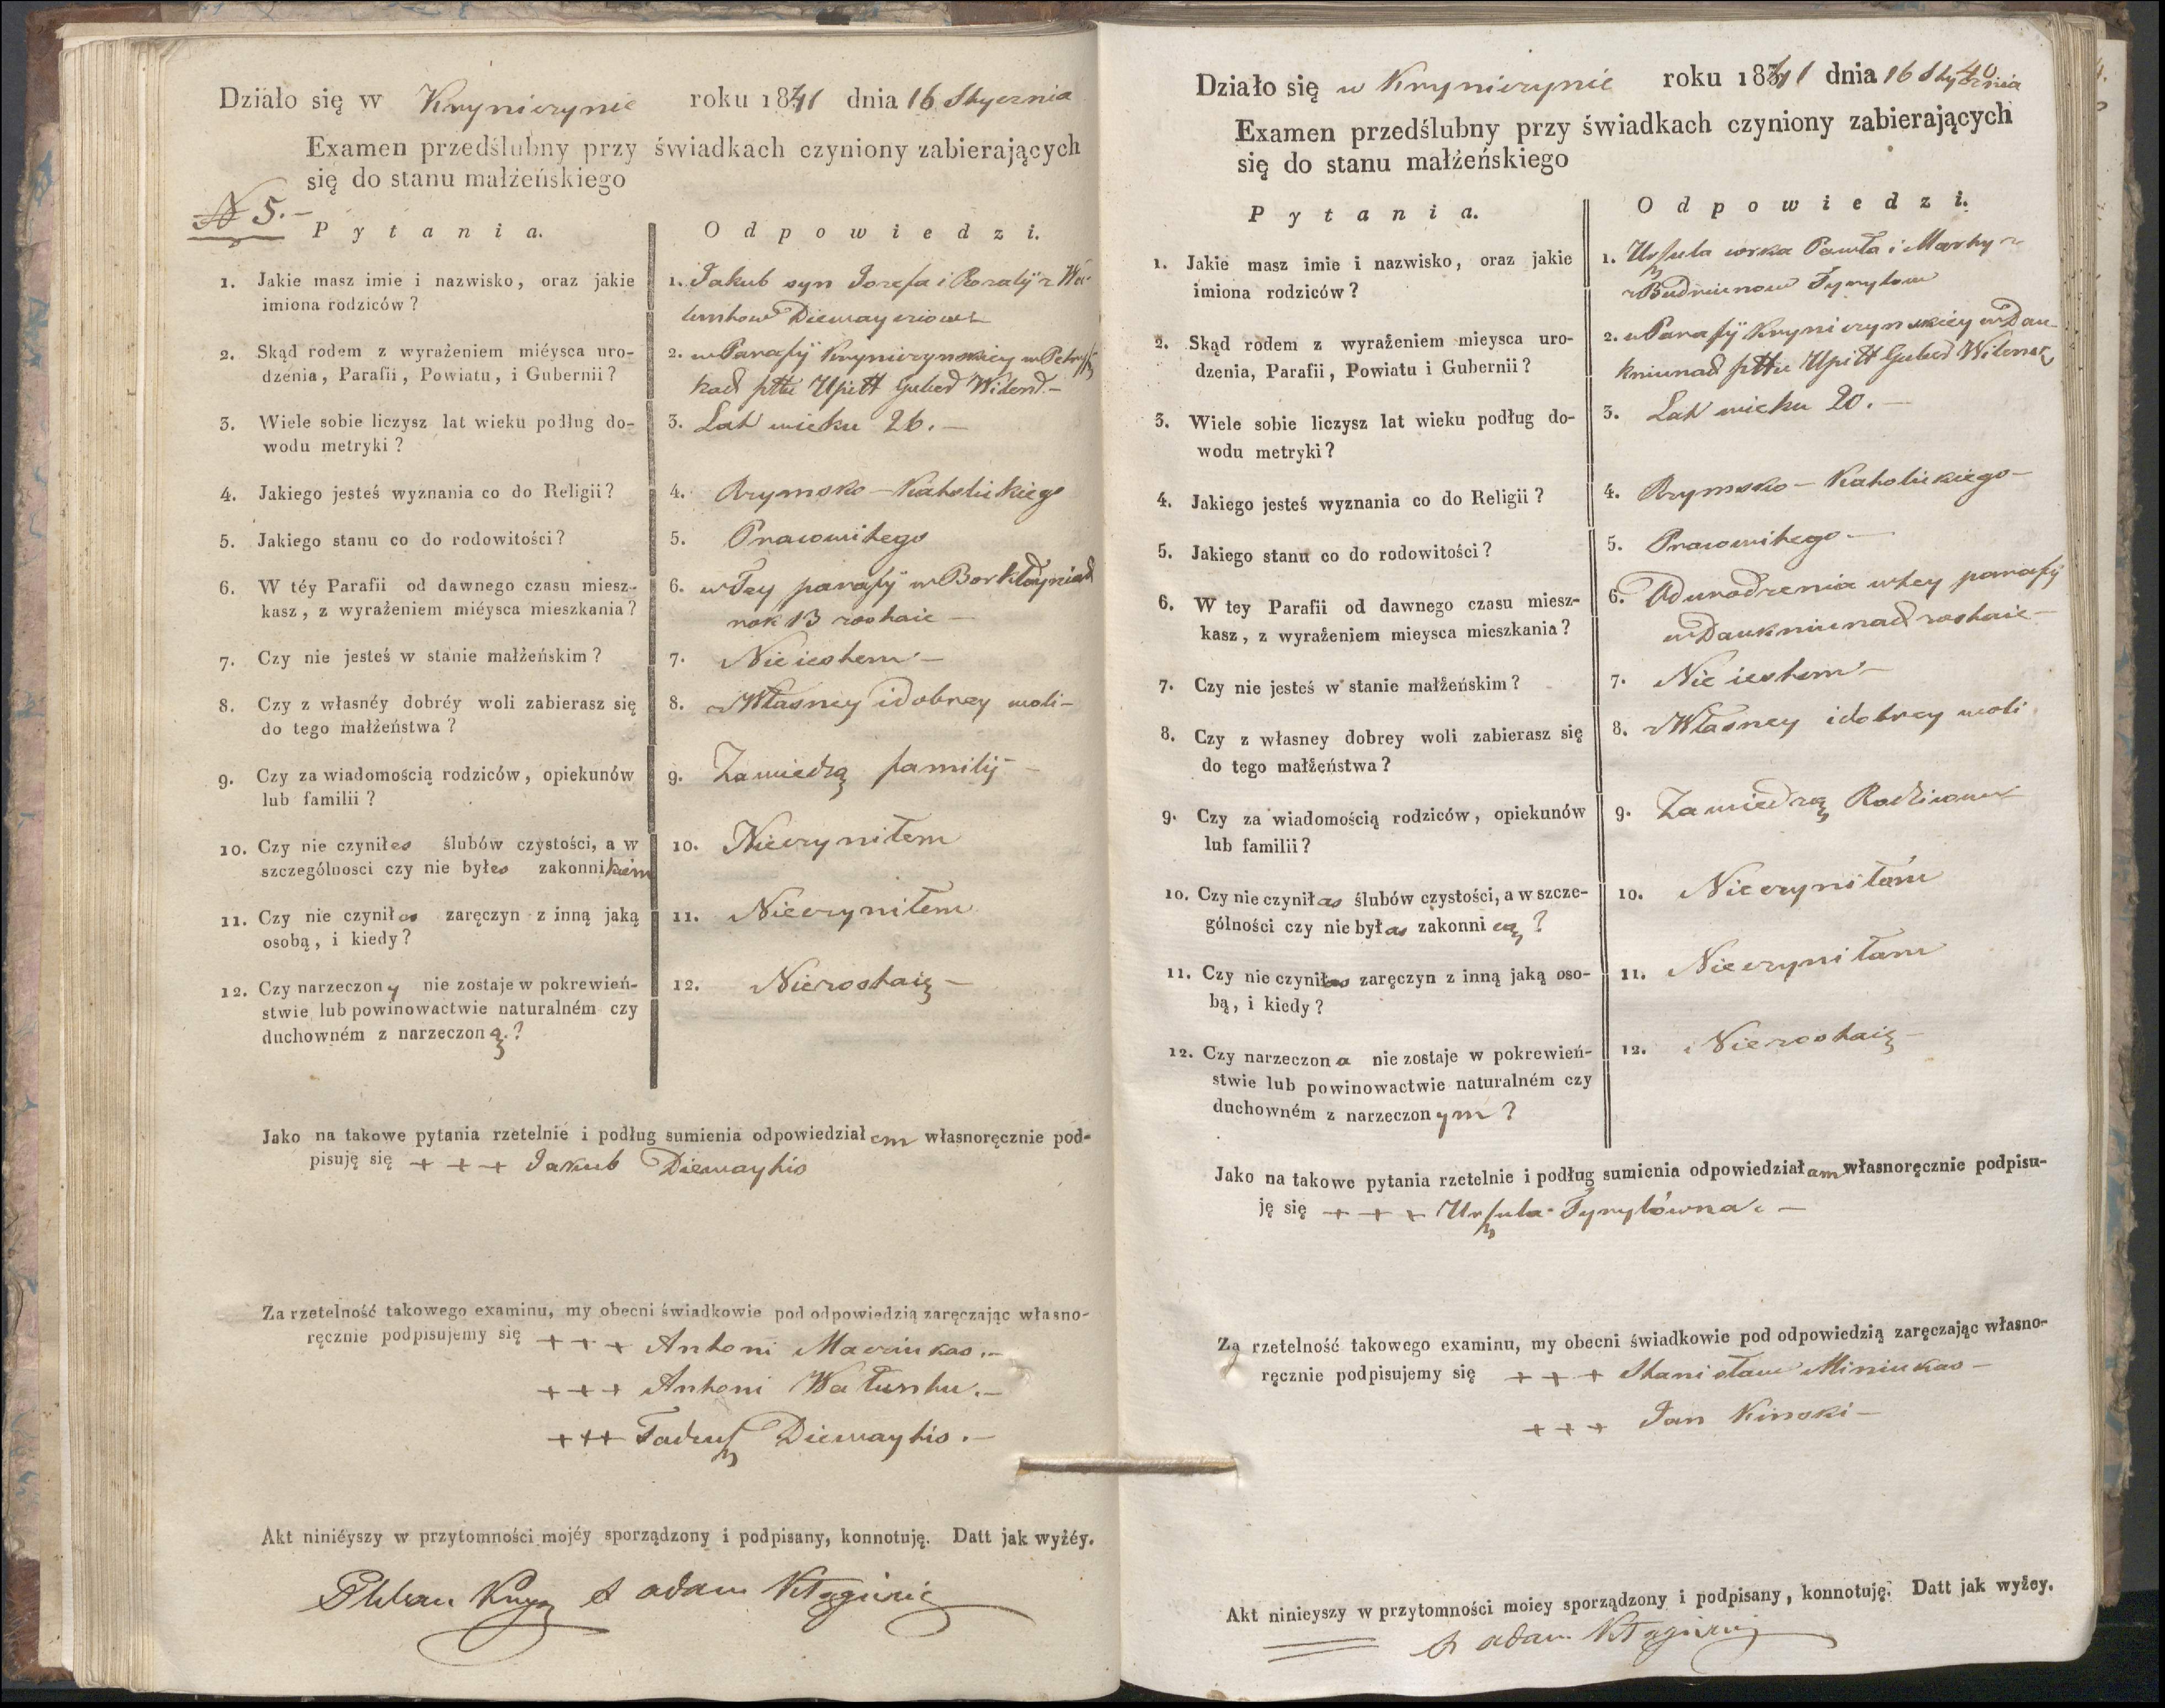 Działo się w Krynierzynie roku 1841 dnia 16 Stycznia
Examen przedślubny przy świadkach czyniony zabierających
się do stanu małżeńskiego
N 5.-
Pytania.
Odpowiedzi.
1. Jakie masz imie i nazwisko, oraz jakie
imiona rodziców?
1. Jakub syn Jozefa i Rozalij z
Diemayciow
2. Skąd rodem z wyrażeniem miéysca uro-
dzenia, Parafii, Powiatu, i Gubernii?
2. w Parafij Krynierzynskiey w
pttu Upitt Guber Wilens.-
3. Wiele sobie liczysz lat wieku podług do-
wodu metryki?
3. Lat wieku 26.-
4. Jakiego jesteś wyznania co do Religii?
4. Rzymsko-Katolickiego
5. Jakiego stanu co do rodowitości?
5. Pracowitego
6. W téy Parafii od dawnego czasu miesz-
kasz, z wyrażeniem miéysca mieszkania?
6. w Tey parafij w
rok 13 zostaie-
7. Czy nie jesteś w stanie małżeńskim?
7. Nie iestem-
8. Czy z własnéy dobréy woli zabierasz się
do tego małżeństwa?
8. z Własney i dobrey woli-
9. Czy za wiadomością rodziców, opiekunów
lub familii?
9. Za wiedzą familij-
10. Czy nie czyniłes ślubów czystości, a w
szczególnosci czy nie byłes zakonnikiem
10. Nieczyniłem
11. Czy nie czyniłes zaręczyn z inną jaką
osobą, i kiedy?
11. Nieczyniłem
12. Czy narzeczony nie zostaje w pokrewień-
stwie lub powinowactwie naturalném czy
duchowném z narzeczoną.?
12. Niezostaię-
Jako na takowe pytania rzetelnie i podług sumienia odpowiedziałem własnoręcznie pod-
pisuję się + + + Jakub Diemaytis
Za rzetelność takowego examinu, my obecni świadkowie pod odpowiedzią zaręczając własno-
ręcznie podpisujemy się + + + Antoni Marcinkas.-
+ + + Antoni Watuntu.-
+ + + Tadeusz Diemaytis.-
Akt niniéyszy w przytomności mojéy sporządzony i podpisany, konnotuję. Datt jak wyżéy.
X Adam
40
Działo się w Krynierzynie roku 1841 dnia 16 Stycznia
Examen przedślubny przy świadkach czyniony zabierających
się do stanu małżeńskiego
Pytania.
Odpowiedzi.
1. Jakie masz imie i nazwisko, oraz jakie
imiona rodziców?
1. Urszula corka Pawła i Marty z
z Budreiunow Tyrylow
2. Skąd rodem z wyrażeniem mieysca uro-
dzenia, Parafii, Powiatu i Gubernii?
2. w Parafij Krynierzynskiey w Dau-
kniunach pttu Upitt Guber Wilens
3. Wiele sobie liczysz lat wieku podług do-
wodu metryki?
3. Lat wieku 20.-
4. Jakiego jesteś wyznania co do Religii?
4. Rzymsko-Katolickiego-
5. Jakiego stanu co do rodowitości?
5. Pracowitego-
6. W tey Parafii od dawnego czasu miesz-
kasz, z wyrażeniem mieysca mieszkania?
6. Od urodzenia w tey parafij
w Daukniunach zostaie-
7. Czy nie jesteś w stanie małżeńskim?
7. Nie iestem-
8. Czy z własney dobrey woli zabierasz się
do tego małżeństwa?
8. z Własney i dobrey woli
9. Czy za wiadomością rodziców, opiekunów
lub familii?
9. Za wiedzą Rodzicow
10. Czy nie czyniłas ślubów czystości, a w szcze-
gólności czy nie byłas zakonnicą?
10. Nieczyniłam
11. Czy nie czyniłas zaręczyn z inną jaką oso-
bą, i kiedy?
11. Nieczyniłam
12. Czy narzeczona nie zostaje w pokrewień-
stwie lub powinowactwie naturalném czy
duchowném z narzeczonym?
12. Niezostaię-
Jako na takowe pytania rzetelnie i podług sumienia odpowiedziałam własnoręcznie podpisu-
ję się + + + Urszula Tyrylówna.-
Za rzetelność takowego examinu, my obecni świadkowie pod odpowiedzią zaręczając własno-
ręcznie podpisujemy się + + + Stanisław Miniukas-
+ + + Jan Kinski-
Akt ninieyszy w przytomności moiey sporządzony i podpisany, konnotuję. Datt jak wyżey.
X Adam